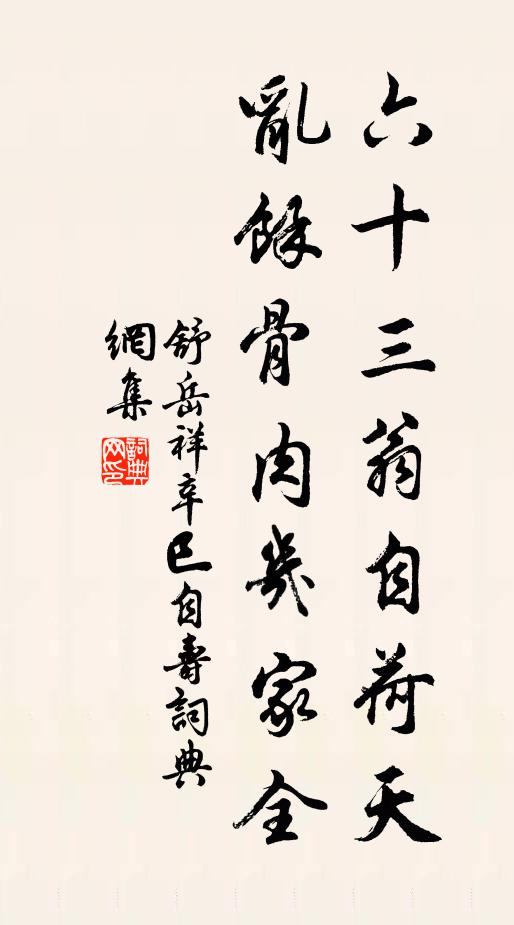 六十三翁自荷天
亂餘骨肉幾家全
舒岳祥辛巳自壽詞典
網集
詞典
网印